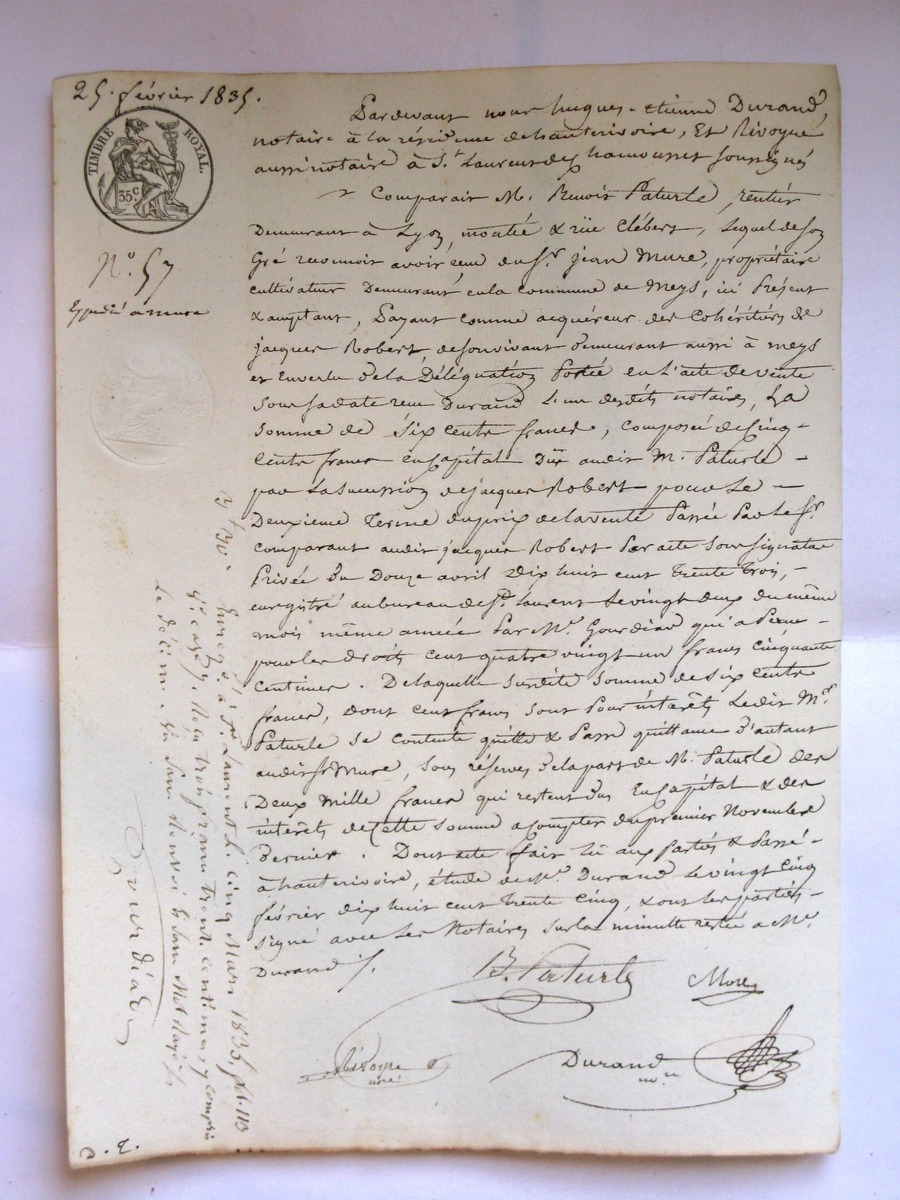 25. février 1835.
TIMBRE ROYAL.
35 c.
N.º 57
Expédié à mure
Pardevant nous hugues-étienne Durand,
notaire à la résidence de hauterivoire, Et Rivoyre
aussi notaire à S.t Laurent de Chamousset soussignés
Comparait M. Benoit Paturle, rentier
Demeurant à Lyon, montée & rüe Clébert, Lequel de son
Gré reconnoit avoir reçu du S.r jean Mure, propriétaire
cultivateur Demeurant en la commune de Meys, ici Présent
& acceptant, Payant comme acquéreur des Cohéritiers de
jacques Robert, de son vivant demeurant aussi à Meys
et En vertu de la Délégation Portée en l'acte de vente
sous sa date reçu Durand L'un desdits notaires, La
somme de Six cents francs, composée de Cinq-
Cents francs en Capital Dûs audit M. Paturle -
par La succession de jacques Robert pour Le -
Deuxième terme du prix de la vente Passée Par le S.r
comparant audit jacques Robert Par acte Sous signature
Privée du Douze avril Dix huit cent trente trois, -
enregistré au bureau de S.t Laurent Le vingt deux du même
mois même année Par M.r Gourdiat qui a Perçu -
pour les droits cent quatre vingt un francs cinquante
Centimes. De laquelle susdite somme de six cents
francs, dont cent francs sont Pour intérêts Ledit M.r
Paturle se contente quitte & Passe quittance d'autant
audit S.r Mure, sous réserves de la part de M. Paturle des
Deux mille francs qui restent dus En capital & des
intérêts de cette somme à compter du premier Novembre
dernier. Dont acte fait lu aux Parties & Passé -
à hauterivoire, étude de M.e Durand Le vingt Cinq
février dix huit cent trente cinq, & ont les parties -
signé avec Les Notaires sur la minutte restée à M.e
Durand /.
B. Paturle
More
Rivoyre
nre
Durand
no.re
3 f 30 c
Enregé à St. Laurent le cinq Mars 1835 fol. 113
Reçu trois francs trente centimes y compris
le décime
Gourdiat